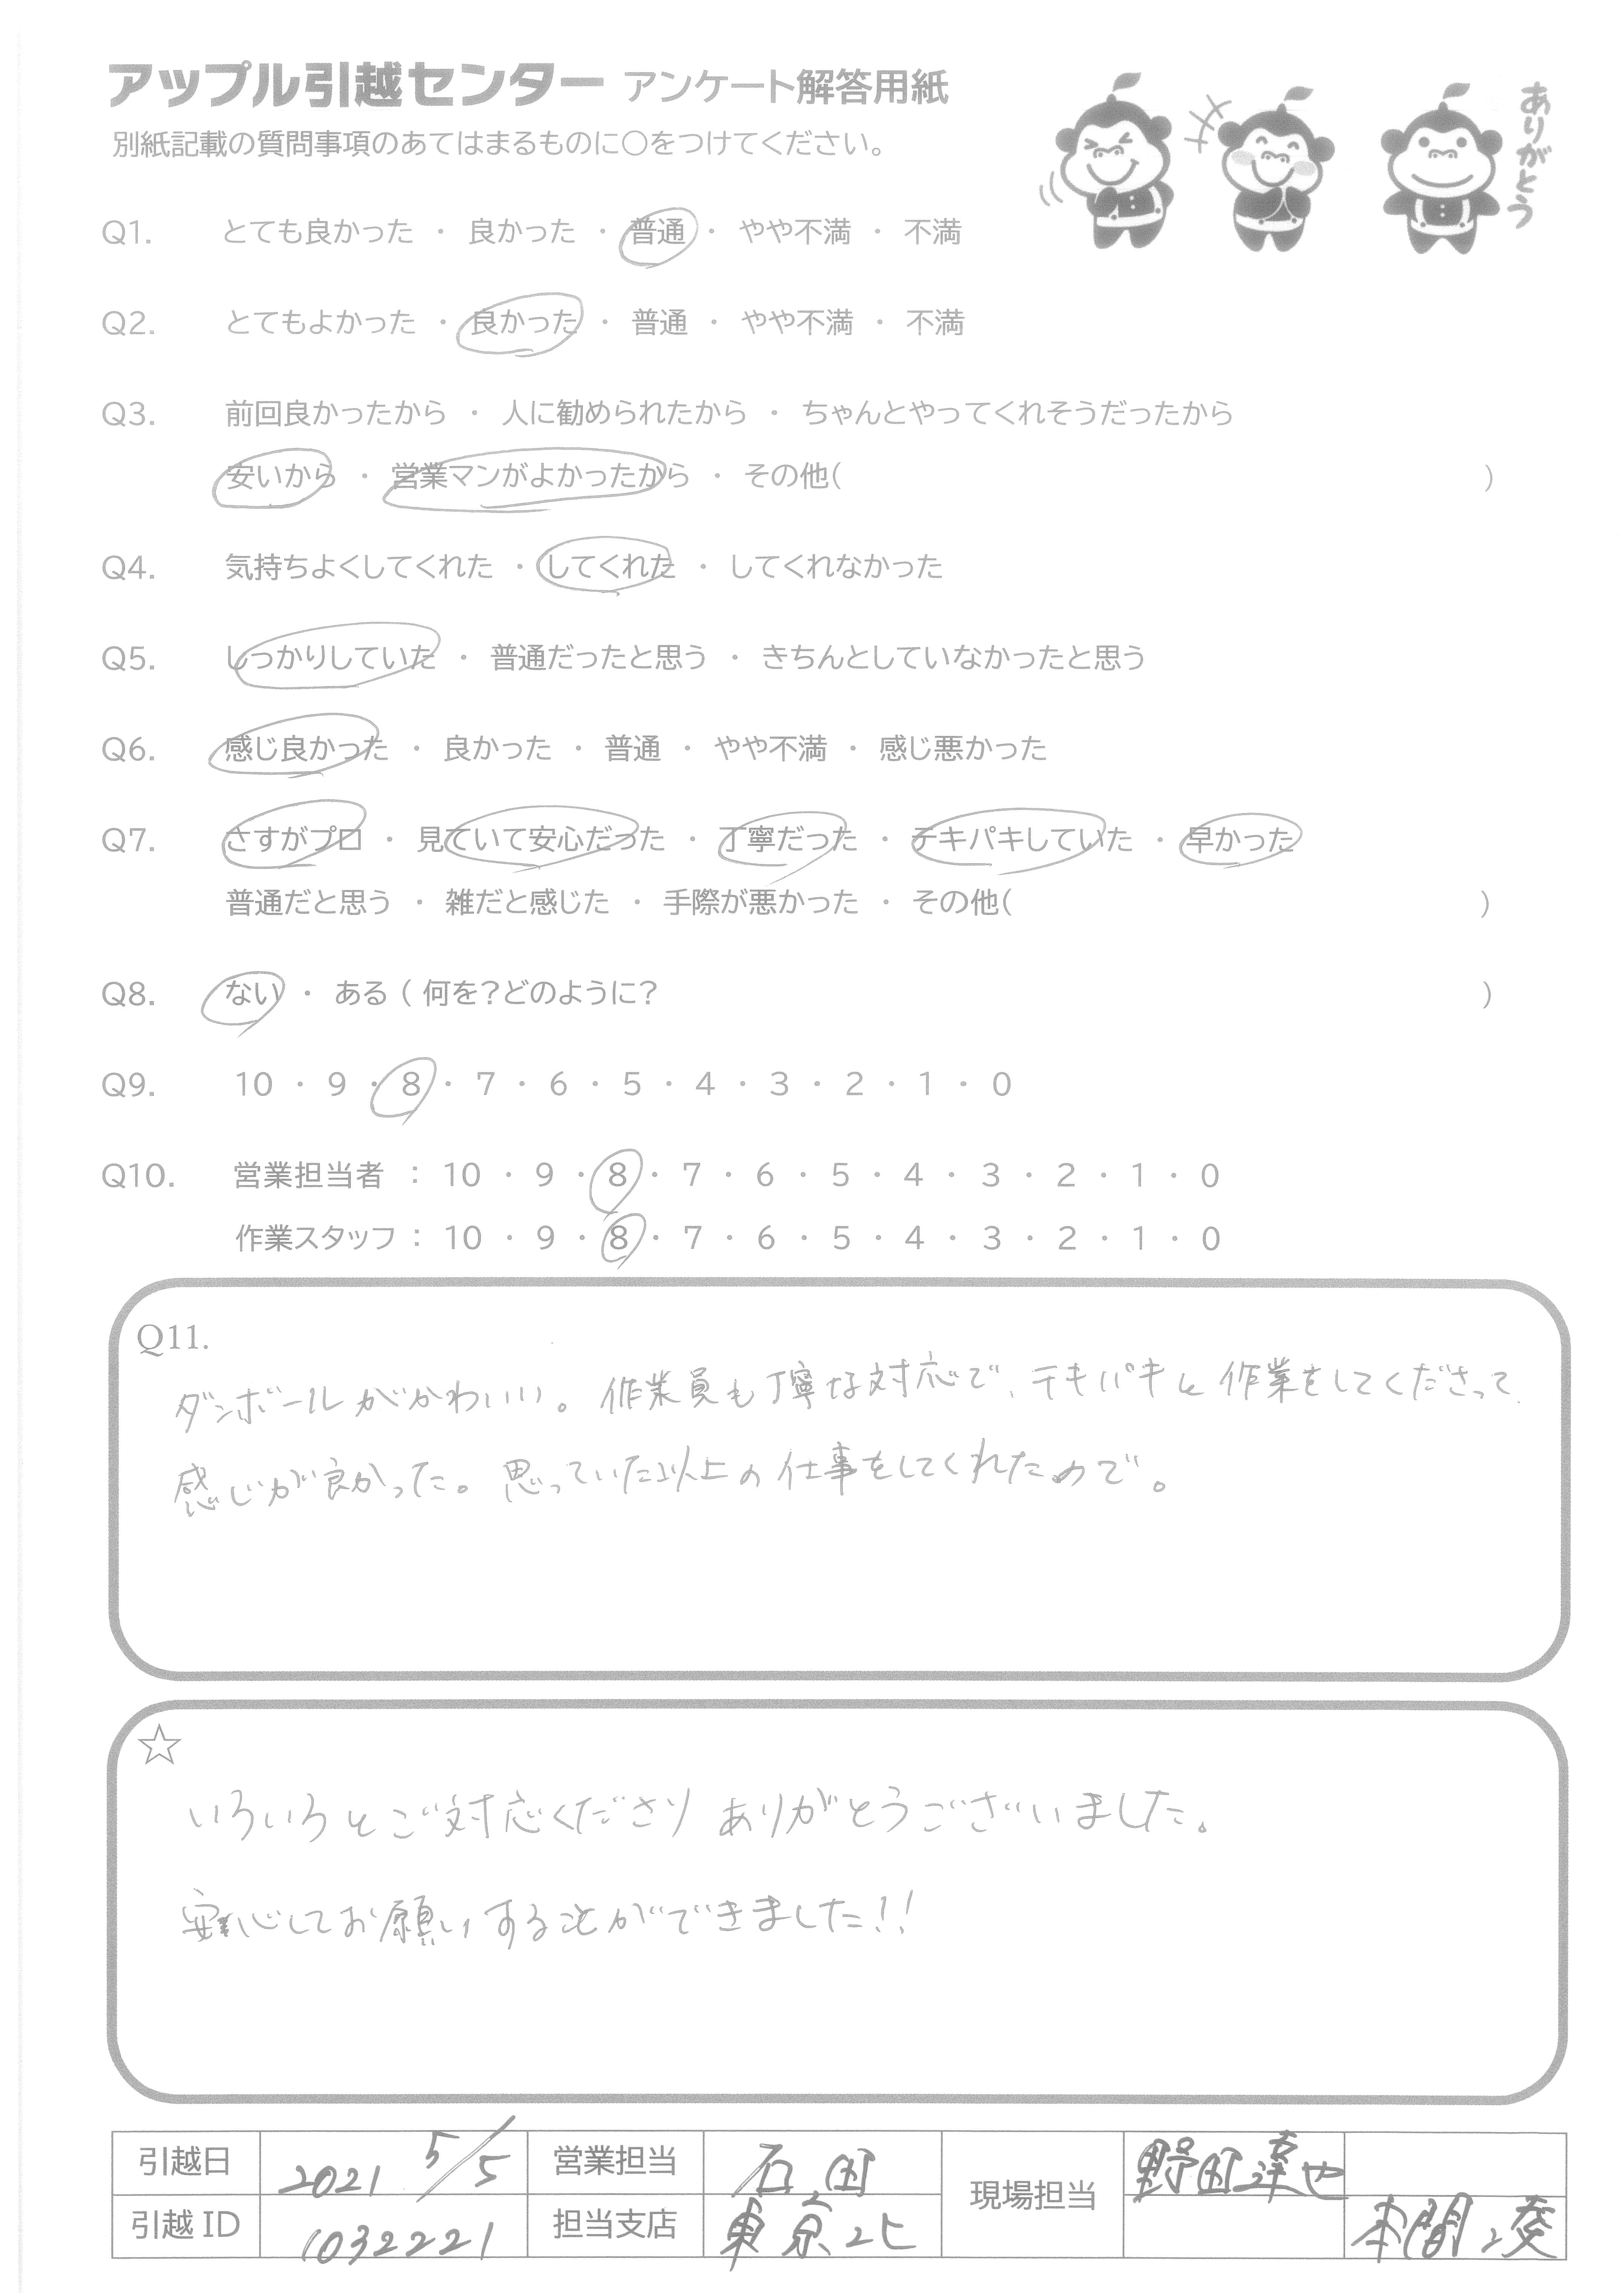 アップル引越センター アンケート解答用紙
別紙記載の質問事項のあてはまるものに○をつけてください。
ありがとう
Q1. とても良かった ・ 良かった ・ 普通 ・ やや不満 ・ 不満
Q2. とてもよかった ・ 良かった ・ 普通 ・ やや不満 ・ 不満
Q3. 前回良かったから ・ 人に勧められたから ・ ちゃんとやってくれそうだったから
安いから ・ 営業マンがよかったから ・ その他( )
Q4. 気持ちよくしてくれた ・ してくれた ・ してくれなかった
Q5. しっかりしていた ・ 普通だったと思う ・ きちんとしていなかったと思う
Q6. 感じ良かった ・ 良かった ・ 普通 ・ やや不満 ・ 感じ悪かった
Q7. さすがプロ ・ 見ていて安心だった ・ 丁寧だった ・ テキパキしていた ・ 早かった
普通だと思う ・ 雑だと感じた ・ 手際が悪かった ・ その他( )
Q8. ない ・ ある ( 何を？どのように？ )
Q9. 10 ・ 9 ・ 8 ・ 7 ・ 6 ・ 5 ・ 4 ・ 3 ・ 2 ・ 1 ・ 0
Q10. 営業担当者 : 10 ・ 9 ・ 8 ・ 7 ・ 6 ・ 5 ・ 4 ・ 3 ・ 2 ・ 1 ・ 0
作業スタッフ : 10 ・ 9 ・ 8 ・ 7 ・ 6 ・ 5 ・ 4 ・ 3 ・ 2 ・ 1 ・ 0
Q11.
ダンボールがかわいい。作業員も丁寧な対応で、テキパキと作業をしてくださって、
感じが良かった。思っていた以上の仕事をしてくれたので。
☆
いろいろとご対応くださり ありがとうございました。
安心してお願いすることができました!!
引越日 2021 5/5 営業担当 石田 現場担当 野町達也
引越 ID 1032221 担当支店 東京北 本間 凌